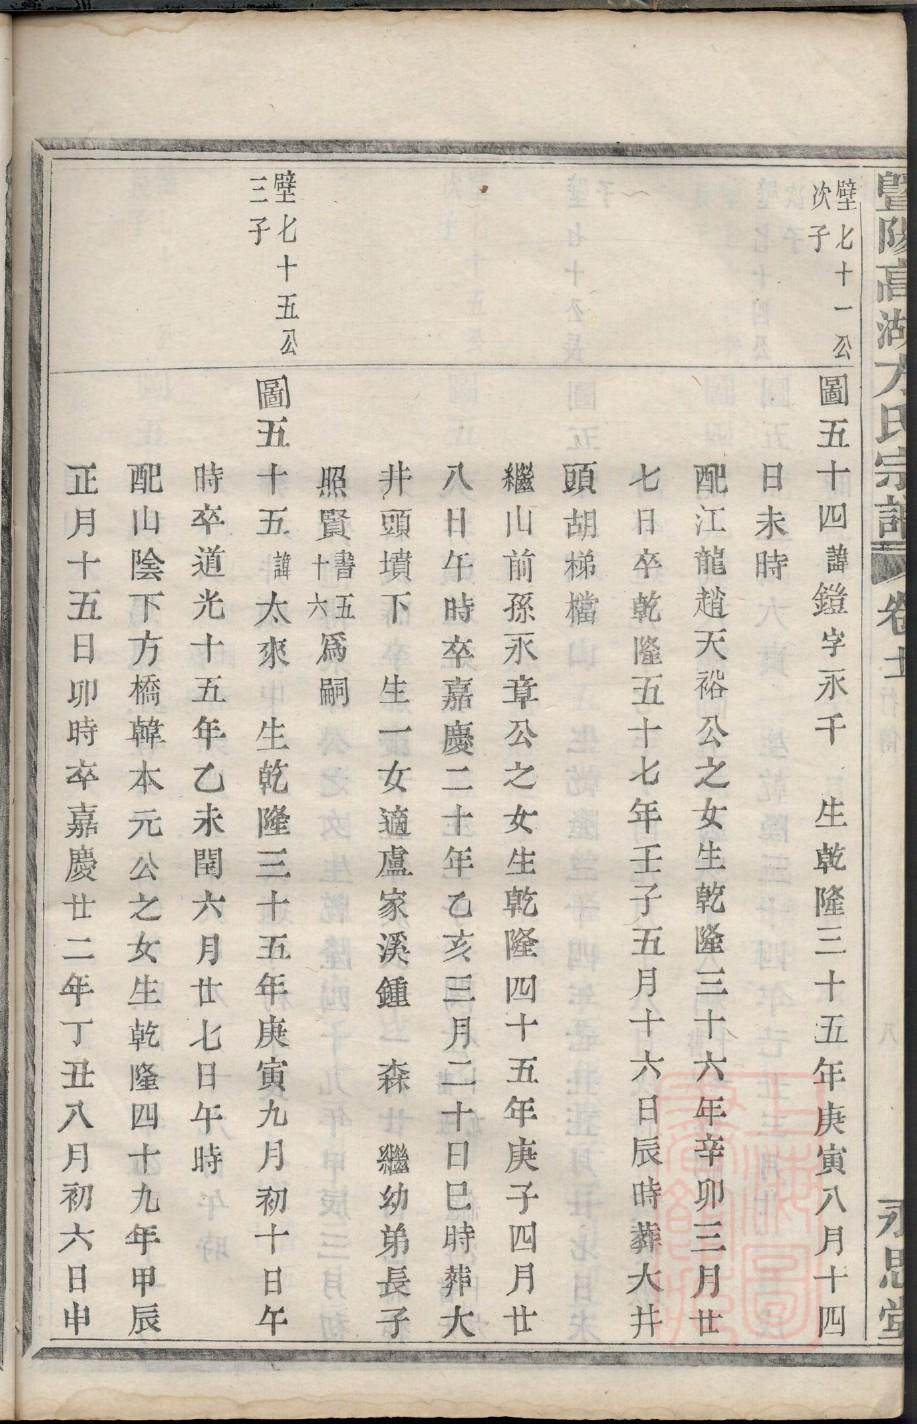 暨陽高湖方氏宗譜 卷十
永思堂
壁七十一公
次子
圖五十四諱鎧字永千 生乾隆三十五年庚寅八月十四
日未時
配江龍趙天裕公之女生乾隆三十六年辛卯三月廿
七日卒乾隆五十七年壬子五月十六日辰時葬大井
頭胡梯檔
繼山前孫永章公之女生乾隆四十五年庚子四月廿
八日午時卒嘉慶二十年乙亥三月二十日巳時葬大
井頭墳下生一女適盧家溪鍾 森 繼幼弟長子
照賢書五十六爲嗣
壁七十五公
三子
圖五十五諱太來 生乾隆三十五年庚寅九月初十日午
時卒道光十五年乙未閏六月廿七日午時
配山陰下方橋韓本元公之女生乾隆四十九年甲辰
正月十五日卯時卒嘉慶廿二年丁丑八月初六日申